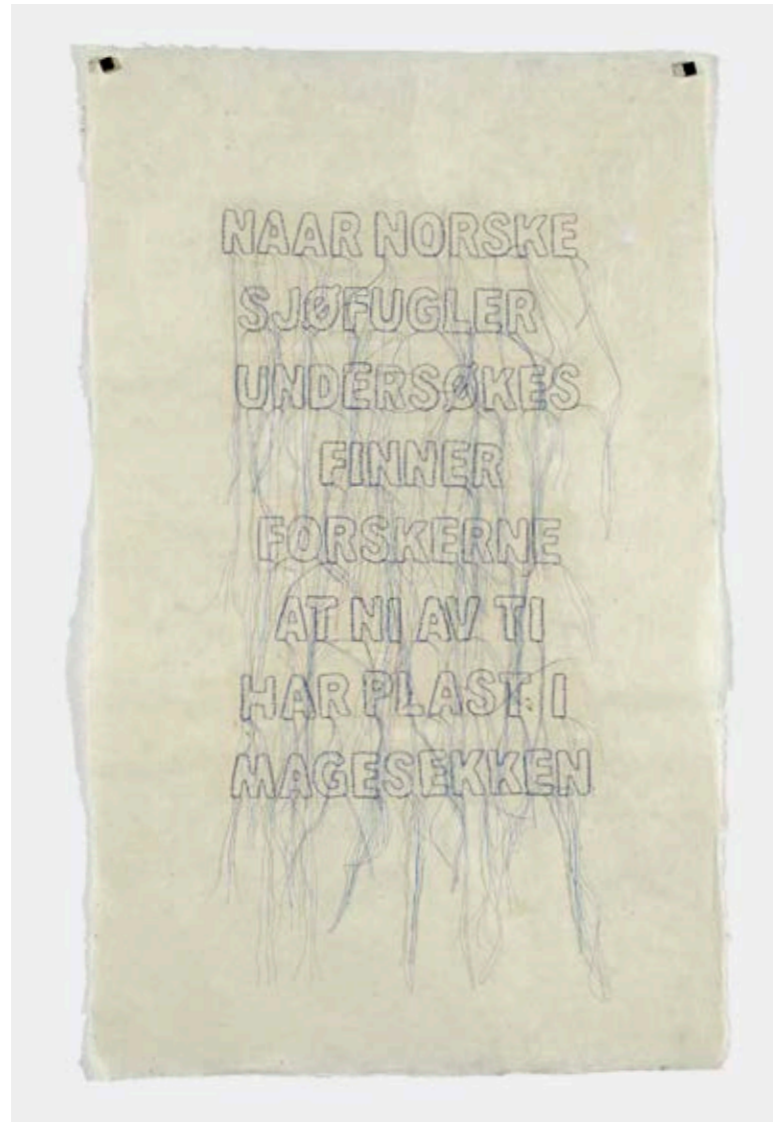 NAAR NORSKE
SJØFUGLER
UNDERSØKES
FINNER
FORSKERNE
AT NI AV TI
HAR PLAST I
MAGESEKKEN